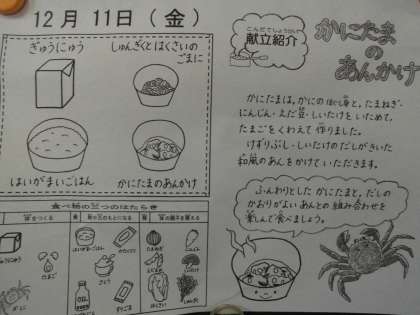 12月11日(金)
ぎゅうにゅう
しゅんぎくとはくさいの
ごまに
はいがまいごはん
かにたまのあんかけ
こんだてしょうかい
献立紹介
かにたま
の
あんかけ
かにたまは、かにのほぐし身と、たまねぎ・
にんじん・えだ豆・しいたけをいためて、
たまごをくわえて作りました。
けずりぶし・しいたけのだしがきいた
和風のあんをかけていただきます。
ふんわりとしたかにたまと、だしの
かおりがよいあんとの組み合わせを
楽しんで食べましょう。
食べ物の三つのはたらき
ぎゅうにゅう
たまご
かに
はいがまいごはん
さとう
油
すりごま
にんじん
はくさい